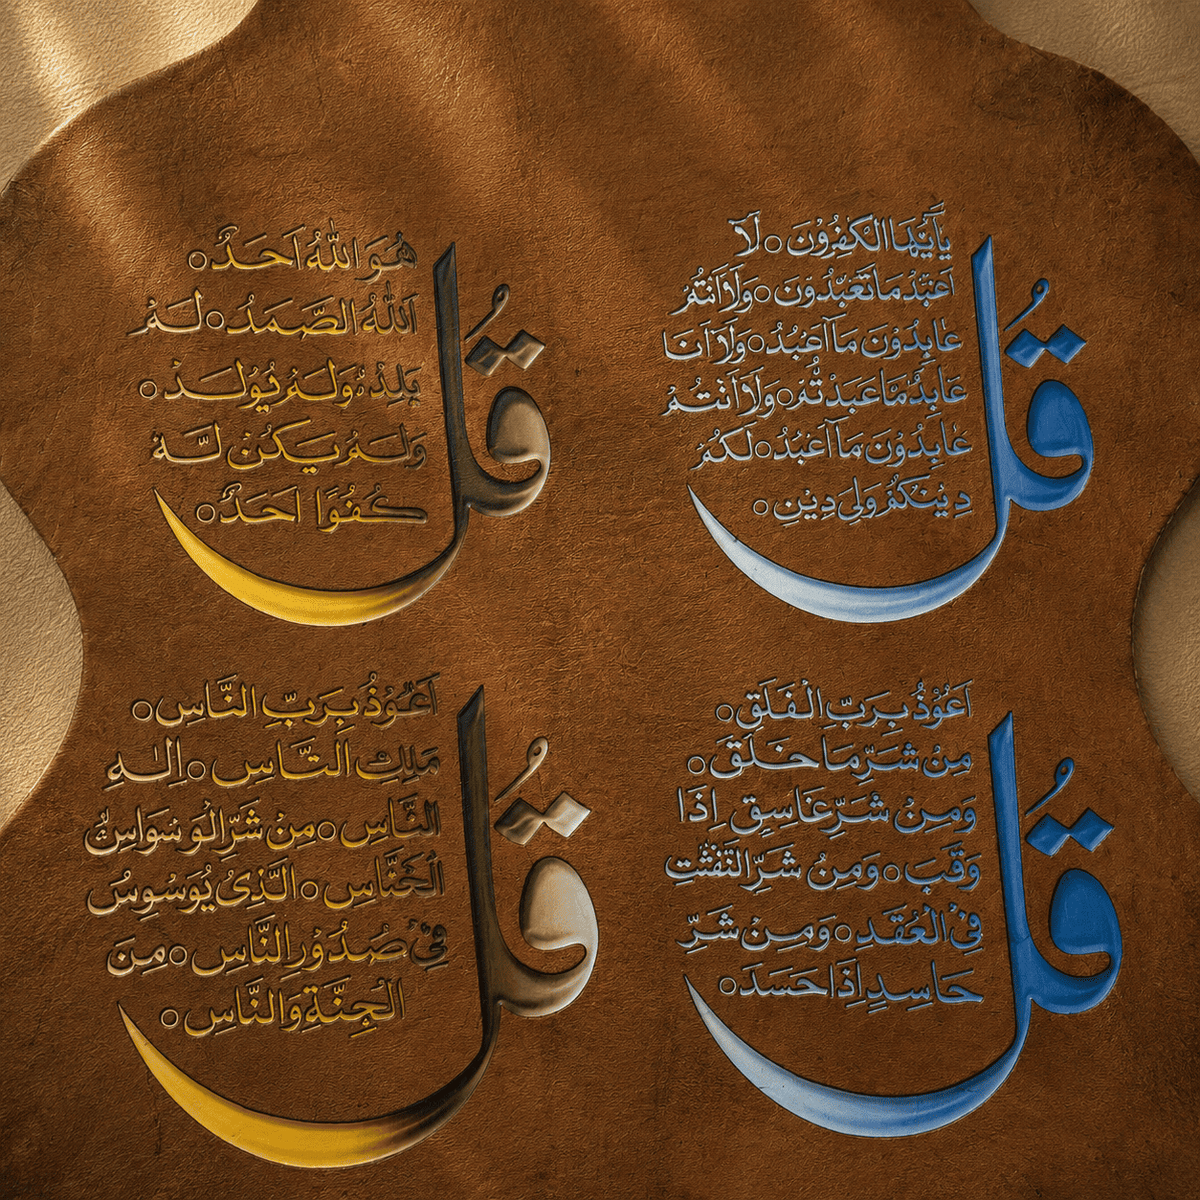 قُلْ
يٰٓاَيُّهَا الْكٰفِرُوْنَ ○ لَآ
اَعْبُدُ مَا تَعْبُدُوْنَ ○ وَلَآ اَنْتُمْ
عَابِدُوْنَ مَآ اَعْبُدُ ○ وَلَآ اَنَا
عَابِدٌ مَّا عَبَدْتُّمْ ○ وَلَآ اَنْتُمْ
عَابِدُوْنَ مَآ اَعْبُدُ ○ لَكُمْ
دِيْنُكُمْ وَلِيَ دِيْنِ ○
قُلْ
هُوَ اللّٰهُ اَحَدٌ ○
اَللّٰهُ الصَّمَدُ ○ لَمْ
يَلِدْ وَلَمْ يُوْلَدْ ○
وَلَمْ يَكُنْ لَّهٗ
كُفُوًا اَحَدٌ ○
قُلْ
اَعُوْذُ بِرَبِّ الْفَلَقِ ○
مِنْ شَرِّ مَا خَلَقَ ○
وَمِنْ شَرِّ غَاسِقٍ اِذَا
وَقَبَ ○ وَمِنْ شَرِّ النَّفّٰثٰتِ
فِي الْعُقَدِ ○ وَمِنْ شَرِّ
حَاسِدٍ اِذَا حَسَدَ ○
قُلْ
اَعُوْذُ بِرَبِّ النَّاسِ ○
مَلِكِ النَّاسِ ○ اِلٰهِ
النَّاسِ ○ مِنْ شَرِّ الْوَسْوَاسِ
الْخَنَّاسِ ○ الَّذِيْ يُوَسْوِسُ
فِيْ صُدُوْرِ النَّاسِ ○ مِنَ
الْجِنَّةِ وَالنَّاسِ ○